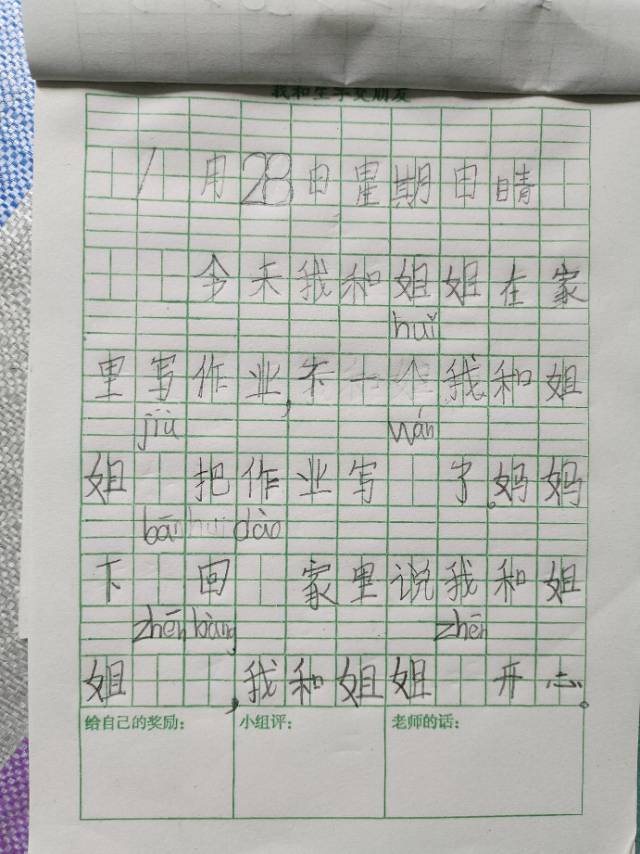 我和生字交朋友
1月28日星期日晴
今天我和姐姐在家
huǐ
里写作业,不一个我和姐
jiù wán
姐 把作业写 了。妈妈
bān huí dào
下 回 家里说我和姐
zhēn bàng zhēn
姐 ,我和姐姐 开心。
给自己的奖励: 小组评: 老师的话: